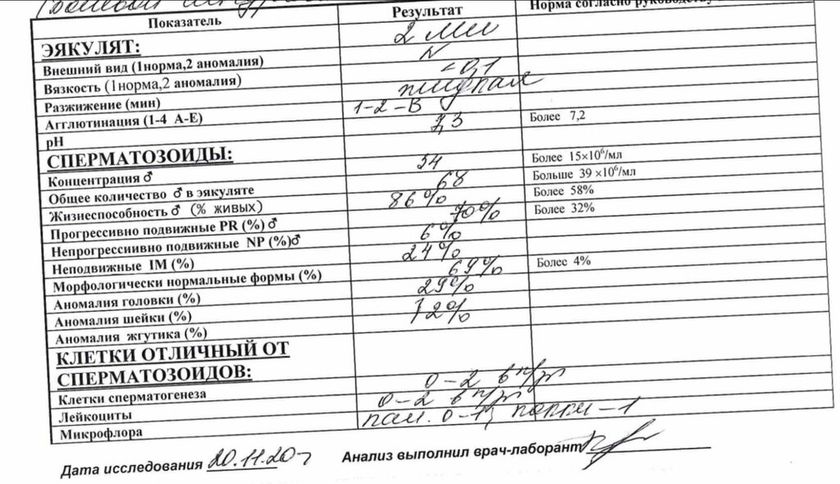 Показатель Результат Норма согласно руководству
ЭЯКУЛЯТ: 2 мл
Внешний вид (1норма,2 аномалия) N
Вязкость (1норма,2 аномалия) 0,1
Разжижение (мин)
Агглютинация (1-4 А-Е) 1-2-В
pH 7,3 Более 7,2
СПЕРМАТОЗОИДЫ:
Концентрация ♂ 34 Более 15×10⁶/мл
Общее количество ♂ в эякуляте 68 Больше 39 ×10⁶/мл
Жизнеспособность ♂ (% живых) 86% Более 58%
Прогрессивно подвижные PR (%) ♂ 70% Более 32%
Непрогрессниивно подвижные NP (%)♂ 6%
Неподвижные IM (%) 24%
Морфологически нормальные формы (%) 69% Более 4%
Аномалия головки (%) 29%
Аномалия шейки (%) 12%
Аномалия жгутика (%)
КЛЕТКИ ОТЛИЧНЫЙ ОТ
СПЕРМАТОЗОИДОВ:
Клетки сперматогенеза 0-2 в п/зр
Лейкоциты 0-2 в п/зр
Микрофлора 0-1, -1
Дата исследования 20.11.20г Анализ выполнил врач-лаборант